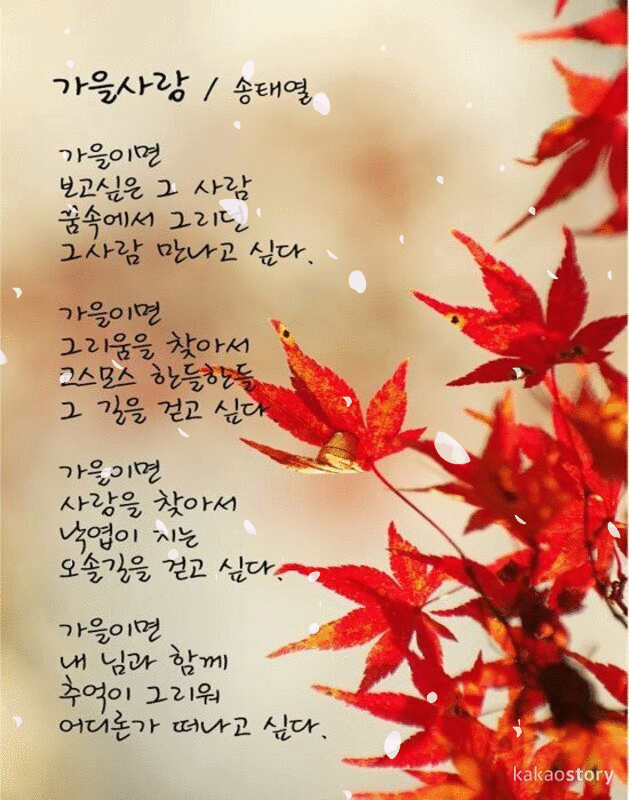 가을사랑 / 송태열
가을이면
보고싶은 그 사람
꿈속에서 그리던
그사람 만나고 싶다.
가을이면
그리움을 찾아서
코스모스 한들한들
그 길을 걷고 싶다
가을이면
사랑을 찾아서
낙엽이 지는
오솔길을 걷고 싶다.
가을이면
내 님과 함께
추억이 그리워
어디론가 떠나고 싶다.
kakaostory